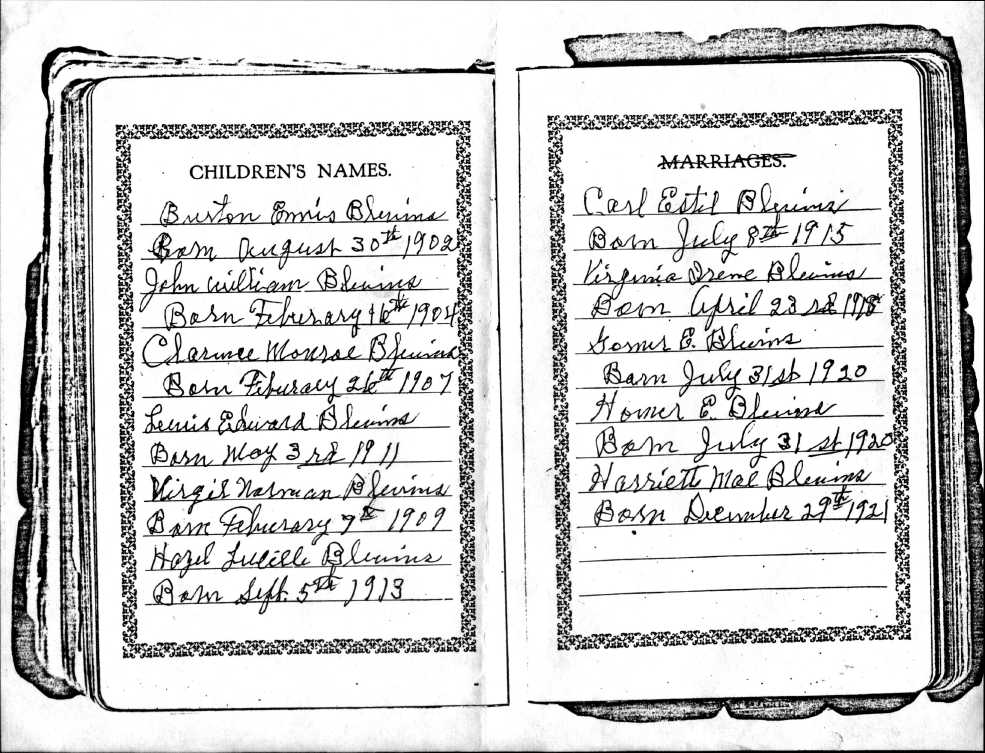 CHILDREN'S NAMES.
Burton Ennis Blevins
Born August 30th 1902
John William Blevins
Born Feburary 16th 1904
Clarence Monroe Blevins
Born Feburary 26th 1907
Lewis Edward Blevins
Born May 3rd 1911
Virgil Norman Blevins
Born Feburary 9th 1909
Hazel Lucille Blevins
Born Sept. 5th 1913
MARRIAGES.
Carl Estil Blevins
Born July 8th 1915
Virginia Irene Blevins
Born April 23rd 1918
Gomer E. Blevins
Born July 31st 1920
Homer E. Blevins
Born July 31st 1920
Harriett Mae Blevins
Born December 29th 1921